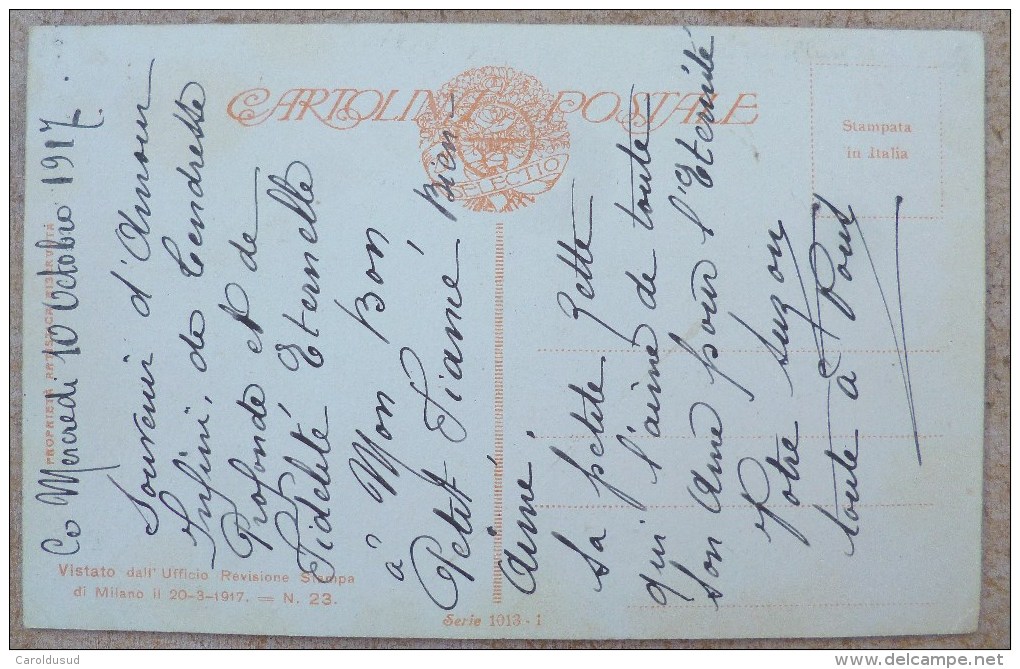 Ce Mercredi 10 Octobre 1917.
Souvenir d'Amour
Infini, de Tendresse
Profonde et de
Fidélité Eternelle
à Mon Bon
Petit Fiancé Bien-
Aimé
Sa petite Zette
qui l'aime de toute
son âme pour l'Eternité
Votre Suzon
toute à Vous
CARTOLINA POSTALE
SELECTIO
Stampata
in Italia
PROPRIETÀ ARTISTICA RISERVATA
Vistato dall' Ufficio Revisione Stampa
di Milano il 20-3-1917. = N. 23.
Serie 1013 - 1
Caroldusud
http://www.delcampe.net